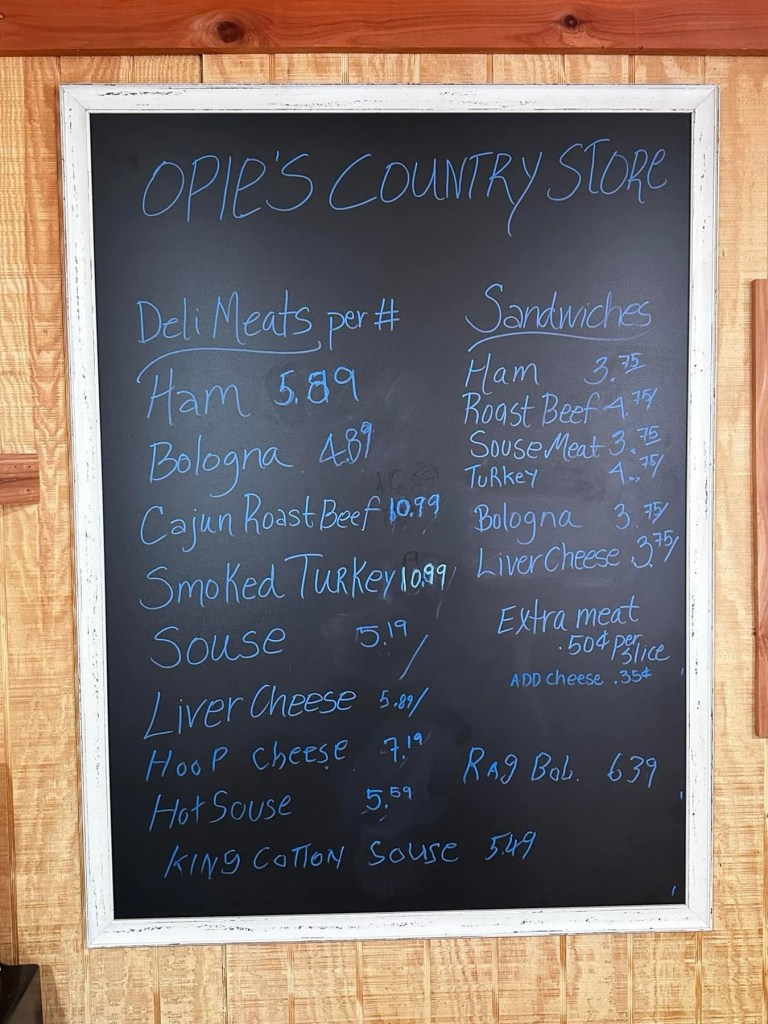 OPIE'S COUNTRY STORE
Deli Meats per #
Ham 5.89
Bologna 4.89
Cajun Roast Beef 10.99
Smoked Turkey 10.99
Souse 5.19
Liver Cheese 5.89/
Hoop Cheese 7.19
Hot Souse 5.59
King Cotton Souse 5.49
Sandwiches
Ham 3.75
Roast Beef 4.75/
Souse Meat 3.75
Turkey 4..75/
Bologna 3.75/
Liver Cheese 3.75/
Extra meat
.50¢ per
slice
ADD cheese .35¢
Rag Bol. 639